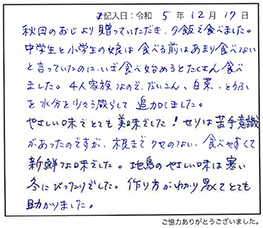 記入日：令和 5年 12月 17日
秋田のおじより贈っていただき、夕飯で食べました。
中学生と小学生の娘は食べる前はあまり食べないな
と言っていたのに、いざ食べ始めるとたくさん食べ
ました。4人家族なので、だいこん、白菜、とうふ
を水分と少々足して追加しました。
やさしい味でとても美味でした！セリは苦手意識
があったのですが、根までクセのない、食べやすくて
新鮮な味でした。地鳥のやさしい味は寒い
冬にぴったりでした。作り方がわかり易くてとても
助かりました。
ご協力ありがとうございました。